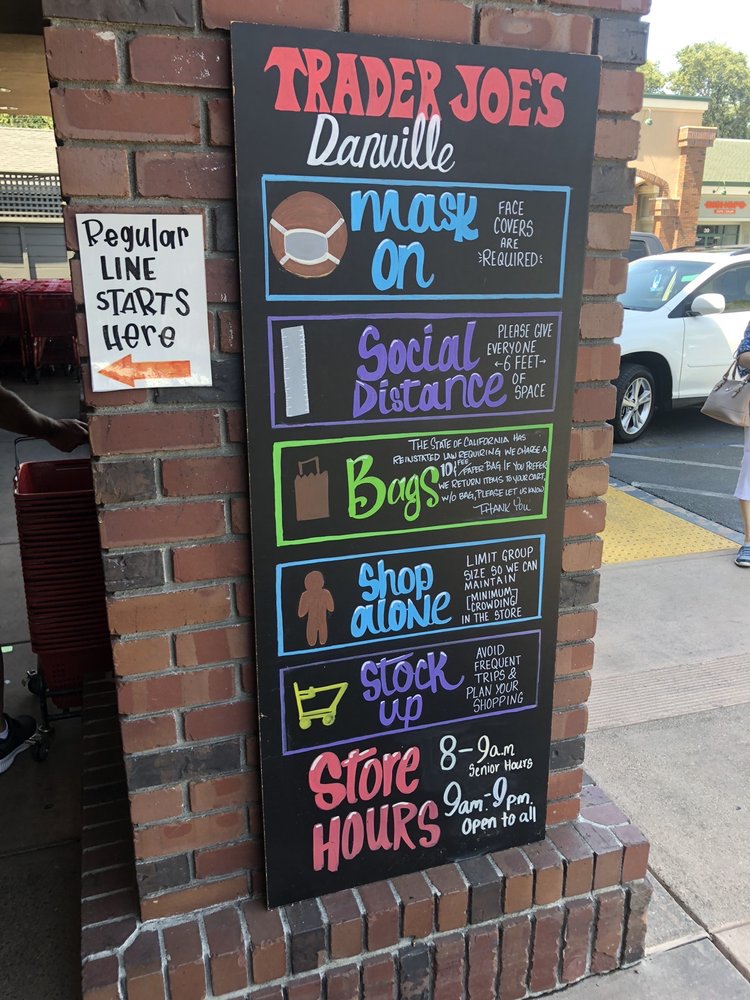 TRADER JOE'S
Danville
Regular
LINE
STARTS
Here
Mask
on
FACE
COVERS
ARE
REQUIRED
Social
Distance
PLEASE GIVE
EVERYONE
6 FEET
OF
SPACE
Bags
THE STATE OF CALIFORNIA HAS
REINSTATED LAW REQUIRING WE CHARGE A
10¢ FEE/PAPER BAG IF YOU PREFER
WE RETURN ITEMS TO YOUR CART,
W/O BAG, PLEASE LET US KNOW
THANK YOU
Shop
alone
LIMIT GROUP
SIZE SO WE CAN
MAINTAIN
[MINIMUM
CROWDING]
IN THE STORE
STOCK
up
AVOID
FREQUENT
TRIPS &
PLAN YOUR
SHOPPING
Store
HOURS
8-9a.m
Senior Hours
9am-9pm.
Open to all